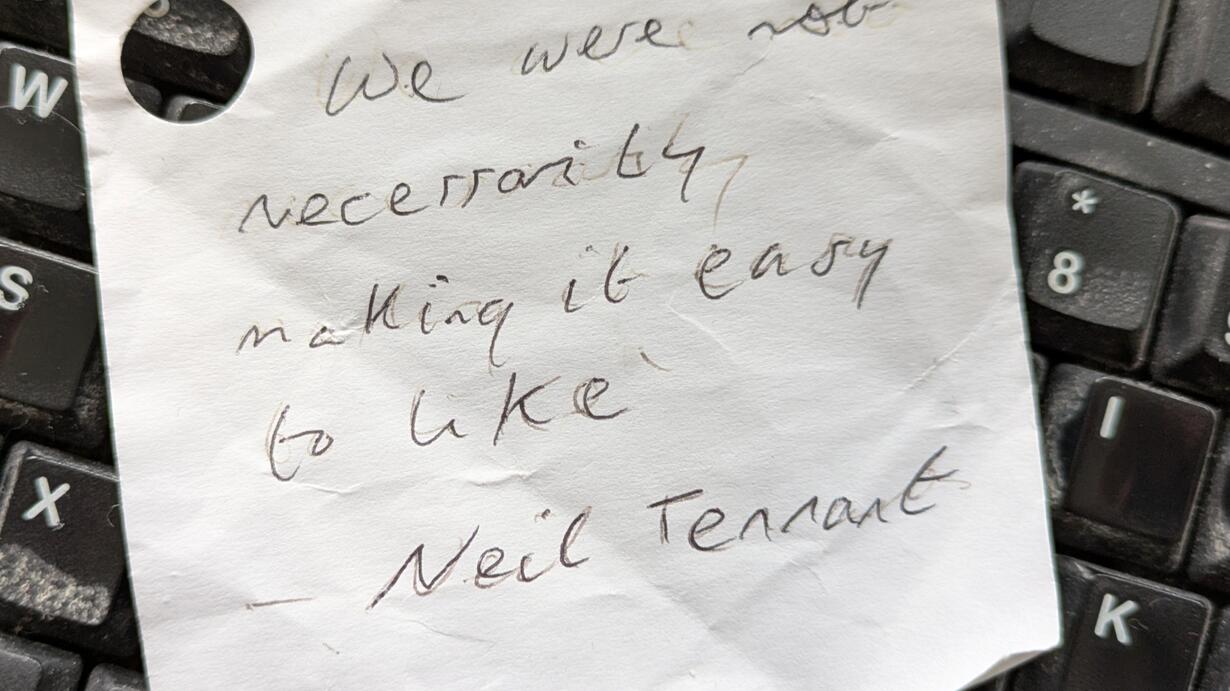 We were not
necessarily
making it easy
to like
- Neil Tennant
W
S
X
*
8
I
K